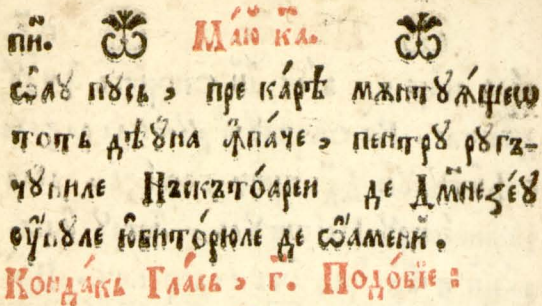 пн҃. Маїю ка҃.
ѡ҆ау пусь, пре ка́рѣ мѫнтуѧ́щеѡ
тоть дѣуна ꙟ҆па́че, пентрꙋ рꙋгъ-
чуниле Нъскъто́арен де Дм҃незе́ꙋ
сп҃ꙋле ю҆бито́рюле де ѡ҆аменй.
Конда́кь Гла́сь, г҃. Подо́бїе: